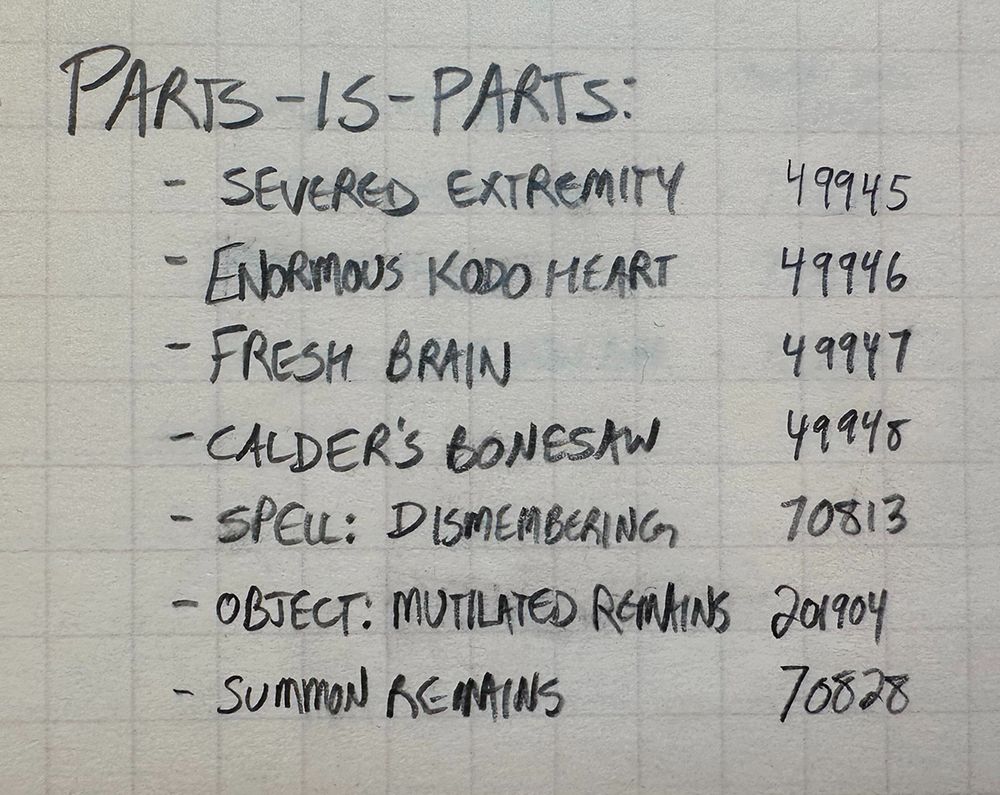 PARTS-IS-PARTS:
- SEVERED EXTREMITY 49945
- ENORMOUS KODO HEART 49946
- FRESH BRAIN 49947
- CALDER'S BONESAW 49948
- SPELL: DISMEMBERING 70813
- OBJECT: MUTILATED REMAINS 201904
- SUMMON REMAINS 70828